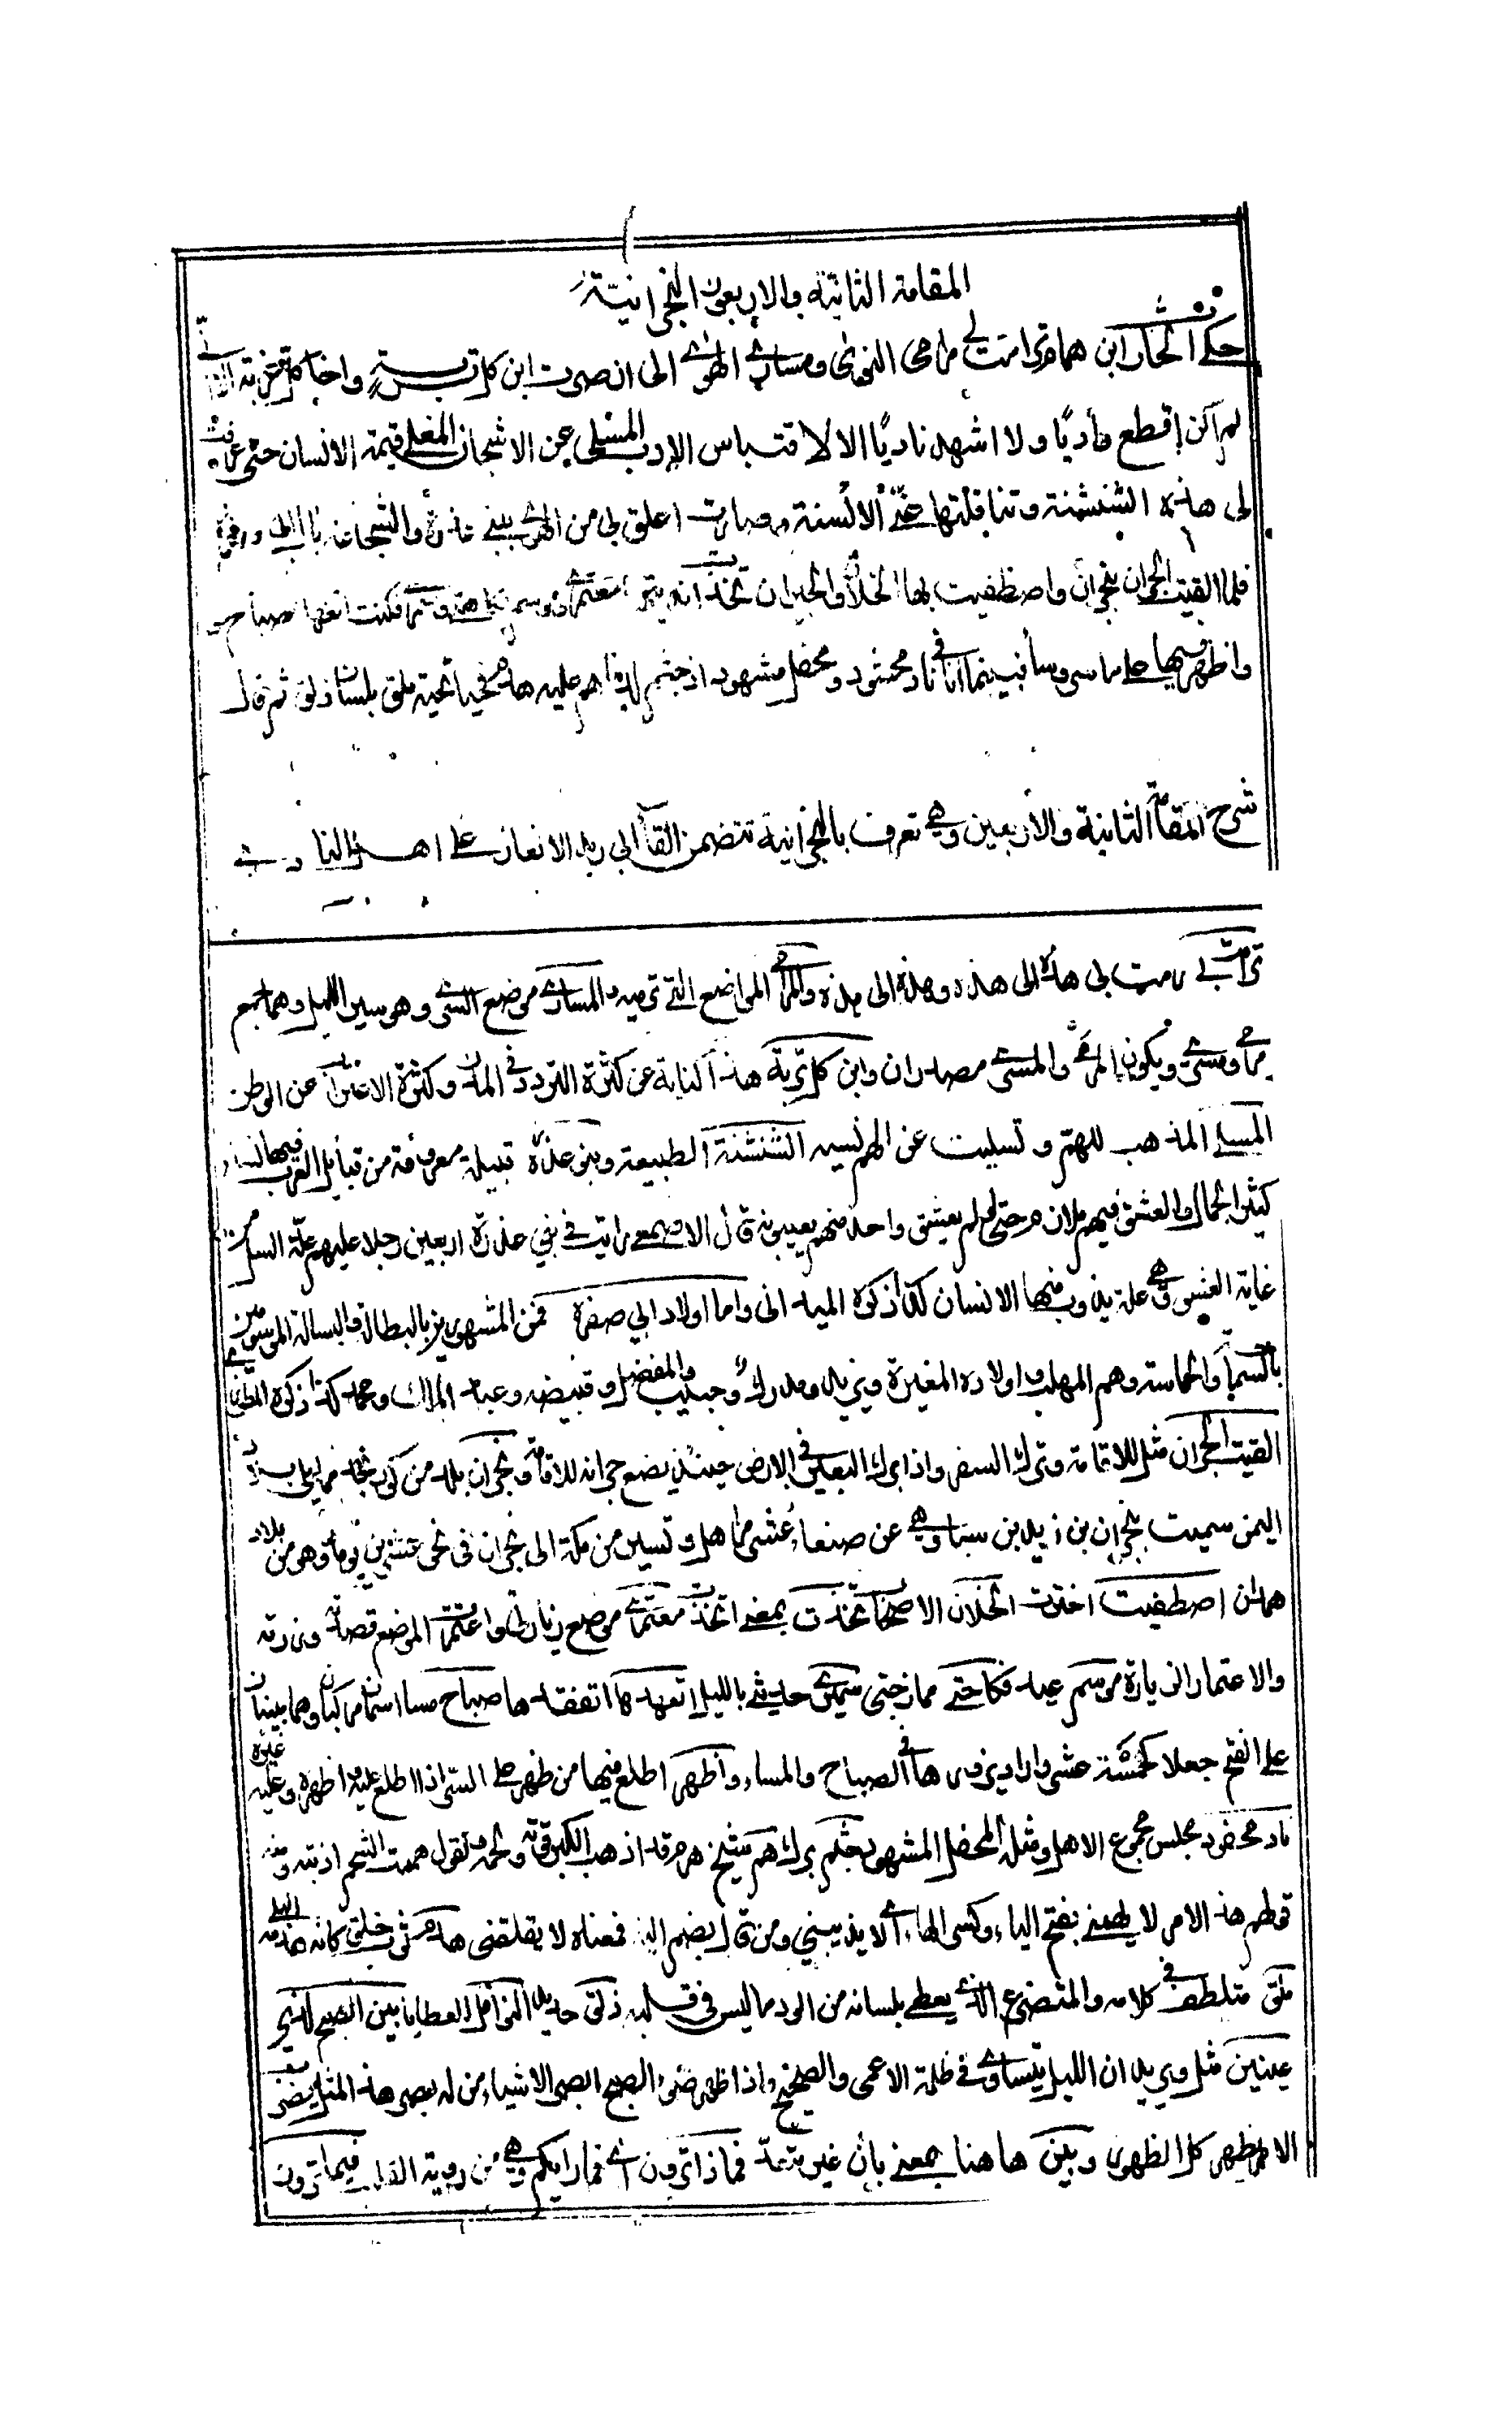 المقامة الثانية والاربعون النجرانية
حكى الحارث ابن همام ترامت بي مرامي النوى ومساري الهوى الى ان صرت ابن كل تربة واخا كل غربة الا اني
لم اكن اقطع واديًا ولا اشهد ناديًا الا لاقتباس الادب المسلي عن الاشجان المغلي قيمة الانسان حتى عرفت
لي هذه الشنشنة وتناقلتها عني الالسنة وصارت اعلق بي من الهوى ببني عذرة والشجاعة بال ابي صفرة
فلما القيت الجران بنجران واصطفيت بها الخلان والجيران تخذت انديتها معتمري وموسم فكاهتي وسمري فكنت اتعهدها صباح
واظهر فيها على ما سر وسا فبينما انا في ناد محشود ومحفل مشهود اذ جثم لدينا هم عليه هدم فحيا تحية ملق بلسان ذلق ثم قال
شرح المقامة الثانية والاربعين وهي تعرف بالنجرانية تتضمن القا ابي زيد الالغاز على اهل النادي
ترامت بي رمت بي هذه الى هذه وهذه الى هذه والمرامي المواضع التي ترميه والمساري موضع السرى وهو سير الليل وهما جمع
مرمى ومسرى ويكون المرمى والمسرى مصدران وابن كل تربة هذا كناية عن كثرة التردد في المدن وكثرة الاغتراب عن الوطن
المسلي المذهب للهم وتسليت عن الهم نسيه الشنشنة الطبيعة وبنو عذرة قبيلة معروفة من قبايل العرب فيها النساء
كثير الجمال والعشق فيهم ملازم حتى لم يعشق واحد منهم يعيبونه قال الاصمعي رايت في بني عذرة اربعين رجلا عليهم علة السل من
غاية العشق وهي علة يذوب منها الانسان كذا ذكره الميداني واما اولاد ابي صفرة فمن المشهورين بالبطالة والبسالة الموسومين
والحماسة وهم المهلب واولاده المغيرة ويزيد ومدرك وحبيب والمفضل وقبيصة وعبد الملك ومحمد كذا ذكره المطرزي
القيت الجران مثل للاقامة وترك السفر واذا برك البعير في الارض حينئذ يضع جرانه للاقامة ونجران بلد من كور نجد مما يلي بلاد
اليمن سميت بنجران بن زيد بن سبا وهي عن صنعاء عشر مراحل وتسير من مكة الى نجران في نحو عشرين يوما وهو من بلاد
همدان اصطفيت اخترت الخلان الاصحاب تخذت بمعنى اتخذت معتمري موضع زيارتي واعتمرت الموضع قصدته وزرته
والاعتمار الزيارة موسم عيد فكاهتي ممازحتي سمري حديثي بالليل اتعهدها اتفقدها صباح مسا اسمان مركبان وهما يبنيان
على الفتح جعلا كخمسة عشر واراد يزورها في الصباح والمساء واظهر اطلع فيها من ظهر على السر اذا اطلع عليه واظهره وعليه غيره
ناد محشود مجلس مجموع الاهل ومثله المحفل المشهود جثم برك هم شيخ هرم قد اذهب الكبر قوته ولحمه تقول هممت الشحم اذبته ومنه
قولهم هذا الامر لا يهمني بفتح الياء وكسر الهاء اي لا يذيبني ومن قال بضم الياء فمعناه لا يقلقني هدم ثوب خلق كانه هدمه البلى
ملق متلطف في كلامه والمتضرع الذي يعطي بلسانه من الود ما ليس في قلبه ذلق حديد النوافل العطايا بين الصبح لذي
عينين مثل ويريد ان الليل يتساوى في ظلمة الاعمى والصحيح واذا ظهر ضوء الصبح ابصر الاشياء من له بصر هذا المثل يضرب
الامر يظهر كل الظهور وبين هاهنا بمعنى بان غير متعد فماذا ترون اي فما رايكم وهي من روية القلب فيما ترون